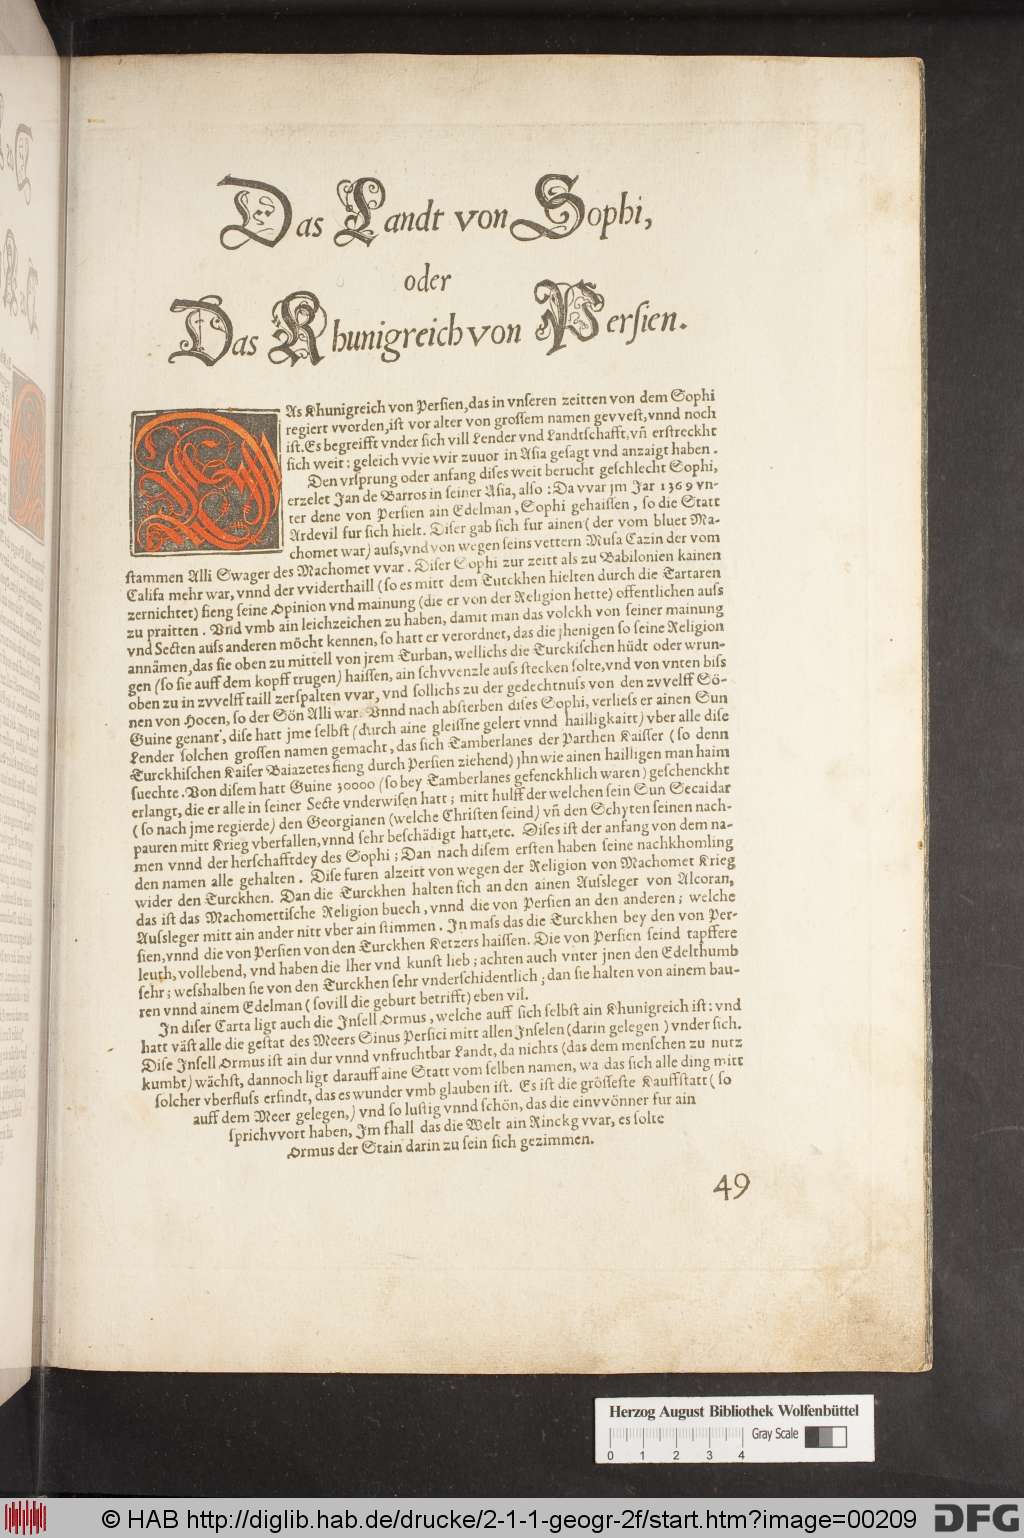 Das Landt von Sophi,
oder
Das Khunigreich von Persien.
DAs Khunigreich von Persien, das in vnseren zeitten von dem Sophi
regiert vvorden, ist vor alter von grossem namen gevvest, vnnd noch
ist. Es begreifft vnder sich vill Lender vnd Landtschafft, vñ erstreckht
sich weit: geleich vvie vvir zuuor in Asia gesagt vnd anzaigt haben.
Den vrsprung oder anfang dises vveit berucht geschlecht Sophi,
erzelet Jan de Barros in seiner Asia, also: Da vvar jm Jar 1369 vn-
ter dene von Persien ain Edelman, Sophi gehaissen, so die Statt
Ardevil fur sich hielt. Diser gab sich fur ainen (der vom bluet Ma-
chomet war) auss, vnd von wegen seins vettern Musa Cazin der vom
stammen Alli Swager des Machomet vvar. Diser Sophi zur zeitt als zu Babilonien kainen
Califa mehr war, vnnd der vviderthaill (so es mitt dem Tutckhen hielten durch die Tartaren
zernichtet) fieng seine Opinion vnd mainung (die er von der Religion hette) offentlichen auss
zu praitten. Vnd vmb ain leichzeichen zu haben, damit man das volckh von seiner mainung
vnd Secten auss anderen möcht kennen, so hatt er verordnet, das die jhenigen so seine Religion
annämen, das sie oben zu mittell von jrem Turban, wellichs die Turckischen hüdt oder wrun-
gen (so sie auff dem kopff trugen) haissen, ain schvvenzle auss stecken solte, vnd von vnten biss
oben zu in zvvelff taill zerspalten vvar, vnd sollichs zu der gedechtnuss von den zvvelff Sö-
nen von Hocen, so der Sön Alli war. Vnnd nach absterben dises Sophi, verliess er ainen Sun
Guine genant, dise hatt jme selbst (durch aine gleissne gelert vnnd hailligkaitt) vber alle dise
Lender solchen grossen namen gemacht, das sich Tamberlanes der Parthen Kaisser (so denn
Turckhischen Kaiser Baiazetes fieng durch Persien ziehend) jhn wie ainen hailligen man haim
suechte. Von disem hatt Guine 30000 (so bey Tamberlanes gefenckhlich waren) geschenckht
erlangt, die er alle in seiner Secte vnderwisen hatt; mitt hulff der welchen sein Sun Secaidar
(so nach jme regierde) den Georgianen (welche Christen seind) vñ den Schyten seinen nach-
pauren mitt Krieg vberfallen, vnnd sehr beschädigt hatt, etc. Dises ist der anfang von dem na-
men vnnd der herschafftdey des Sophi; Dan nach disem ersten haben seine nachkhomling
den namen alle gehalten. Dise furen alzeitt von wegen der Religion von Machomet Krieg
wider den Turckhen. Dan die Turckhen halten sich an den ainen Aussleger von Alcoran,
das ist das Machomettische Religion buech, vnnd die von Persien an den anderen; welche
Aussleger mitt ain ander nitt vber ain stimmen. In mass das die Turckhen bey den von Per-
sien, vnnd die von Persien von den Turckhen Ketzers haissen. Die von Persien seind tapffere
leuth, vollebend, vnd haben die lher vnd kunst lieb; achten auch vnter jnen den Edelthumb
sehr; wesshalben sie von den Turckhen sehr vnderschidentlich; dan sie halten von ainem bau-
ren vnnd ainem Edelman (sovill die geburt betrifft) eben vil.
In diser Carta ligt auch die Insell Ormus, welche auff sich selbst ain Khunigreich ist: vnd
hatt väst alle die gestat des Meers Sinus Persici mitt allen Inselen (darin gelegen) vnder sich.
Dise Insell Ormus ist ain dur vnnd vnfruchtbar Landt, da nichts (das dem menschen zu nutz
kumbt) wächst, dannoch ligt darauff aine Statt vom selben namen, wa das sich alle ding mitt
solcher vberfluss erfindt, das es wunder vmb glauben ist. Es ist die grösseste Kauffstatt (so
auff dem Meer gelegen,) vnd so lustig vnnd schön, das die einvvönner fur ain
sprichvvort haben, Im fhall das die Welt ain Rinckg vvar, es solte
Ormus der Stain darin zu sein sich gezimmen.
49
Herzog August Bibliothek Wolfenbüttel
Gray Scale
0 1 2 3 4
© HAB http://diglib.hab.de/drucke/2-1-1-geogr-2f/start.htm?image=00209
DFG